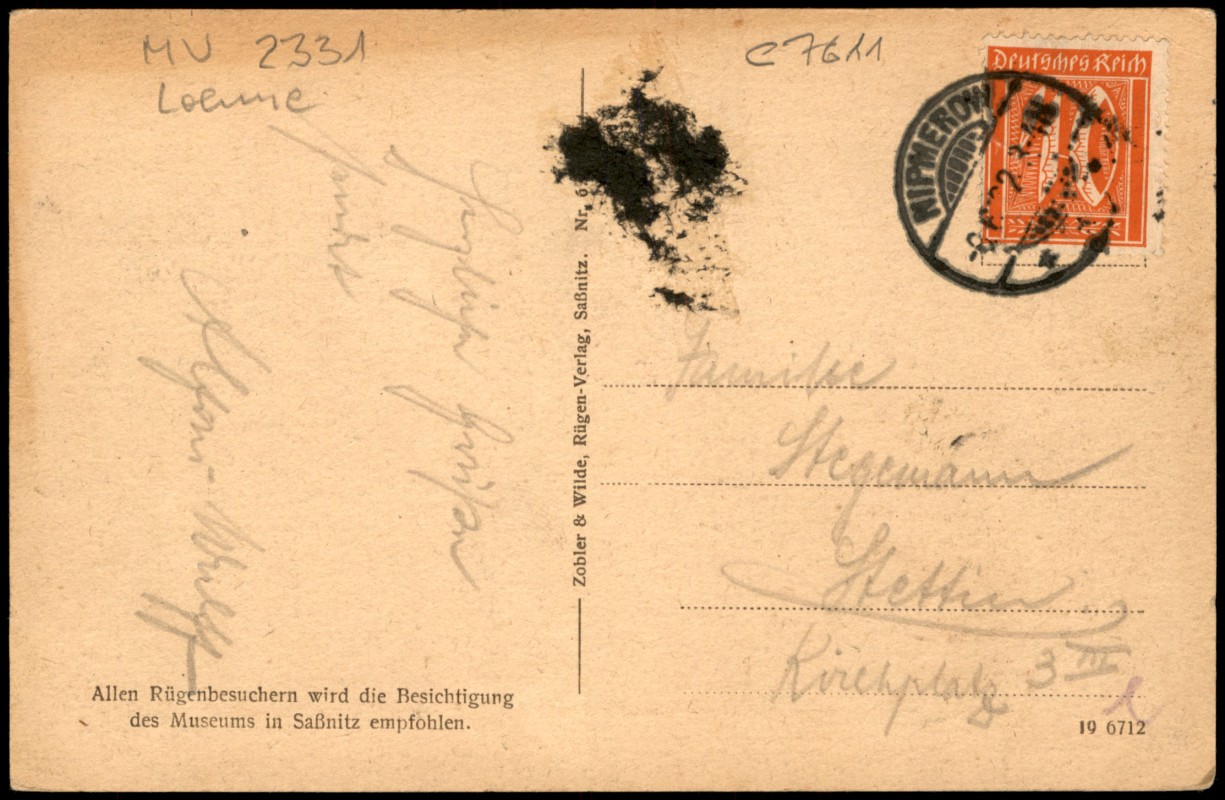 MV 2331
Lohme
C7611
Deutsches Reich
40
NIPMEROW
Herzliche Grüßen
Zobler & Wilde, Rügen-Verlag, Saßnitz. Nr. 6
Familie
Stegemann
Stettin
Kirchplatz 3 III
Allen Rügenbesuchern wird die Besichtigung
des Museums in Saßnitz empfohlen.
19 6712